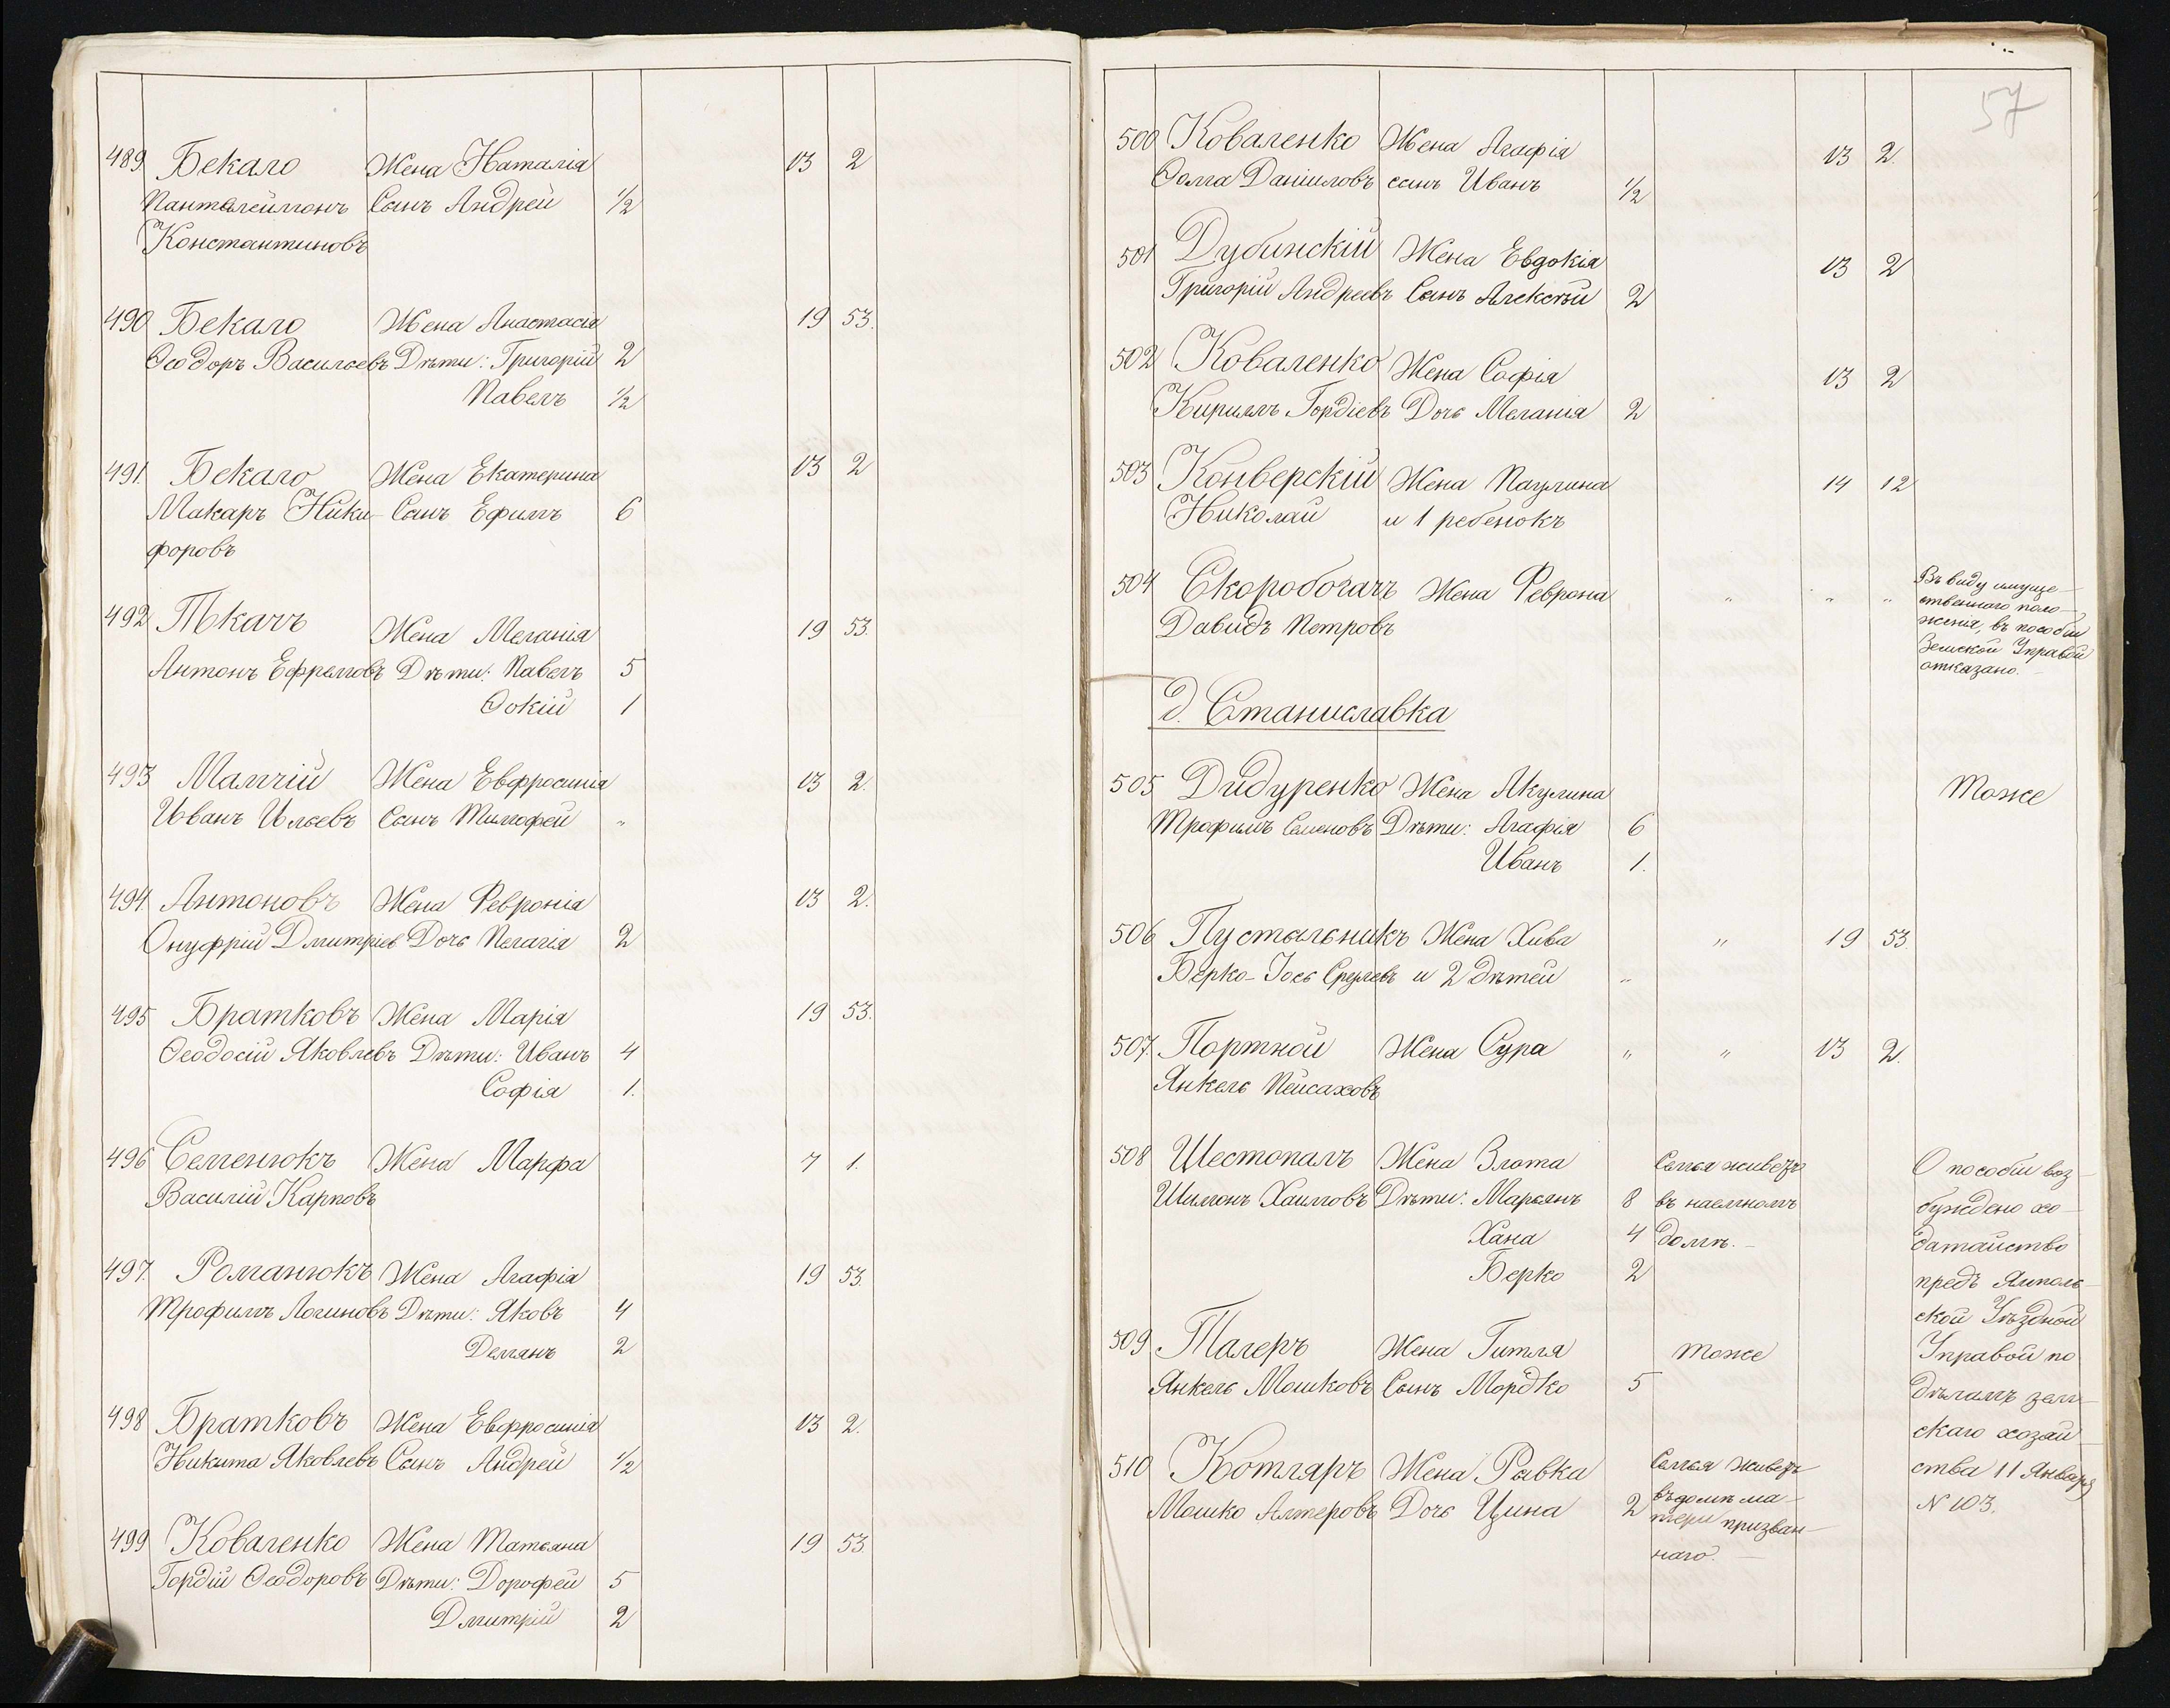 489. Бекало Жена Наталія 13 2
Пантелеймонъ Сынъ Андрей 1/2
Константиновъ
490 Бекало Жена Анастасія 19 53.
Ѳеодоръ Васильевъ Дѣти: Григорій 2
Павелъ 1/2
491. Бекало Жена Екатерина 13 2
Макаръ Ники- Сынъ Ефимъ 6
форовъ
492 Ткачъ Жена Меланія 19 53.
Антонъ Ефремовъ Дѣти: Павелъ 5
Фокій 1
493 Мамчій Жена Евфросинія 13 2.
Иванъ Ильевъ Сынъ Тимофей "
494. Антоновъ Жена Февронія 13 2.
Онуфрій Дмитріев Дочь Пелагія 2
495 Братковъ Жена Марія 19 53.
Ѳеодосій Яковлевъ Дѣти: Иванъ 4
Софія 1.
496 Семенюкъ Жена Марфа 7 1.
Василій Карповъ
497. Романюкъ Жена Агафія 19 53.
Трофимъ Логиновъ Дѣти: Яковъ 4
Демянъ 2
498 Братковъ Жена Евфросинія 13 2.
Никита Яковлевъ Сынъ Андрей 1/2
499 Коваленко Жена Татьяна 19 53.
Гордій Ѳеодоровъ Дѣти: Дорофей 5
Дмитрій 2
57
500 Коваленко Жена Агафія 13 2.
Данииловъ сынъ Иванъ 1/2
501 Дубинскій Жена Евдокія 13 2
Григорій Андреевъ Сынъ Алексѣй 2
502 Коваленко Жена Софія 13 2
Кириллъ Гордіевъ Дочь Меланія 2
503 Конверскій Жена Паулина 14 12
Николай и 1 ребенокъ
504 Скоробогачъ Жена Феврона " " " Въ виду имуще-
Давидъ Петровъ ственнаго поло-
женія, въ пособіи
Земской Управой
отказано.
д. Станиславка
505 Дидуренко Жена Акулина Тоже
Трофимъ Семеновъ Дѣти: Агафія 6
Иванъ 1.
506 Пустыльникъ Жена Хива " 19 53
Берко-Іось Срулевъ и 2 дѣтей "
507. Портной Жена Сура " " 13 2.
Янкель Пейсаховъ
508 Шестопалъ Жена Злота Семья живетъ О пособіи воз-
Шимонъ Хаимовъ Дѣти: Марьямъ 8 въ наемномъ буждено хо-
Хана 4 домѣ. датайство
Берко 2 предъ Ямполь-
ской Уѣздной
509 Талеръ Жена Гитля Тоже Управой по
Янкель Мошковъ Сынъ Мордко 5 дѣламъ зем-
скаго хозяй-
510 Котляръ Жена Рывка Семья живетъ ства 11 Января
Мошко Алтеровъ Дочь Цина 2 въ домѣ ма- № 103.
тери призван-
наго.